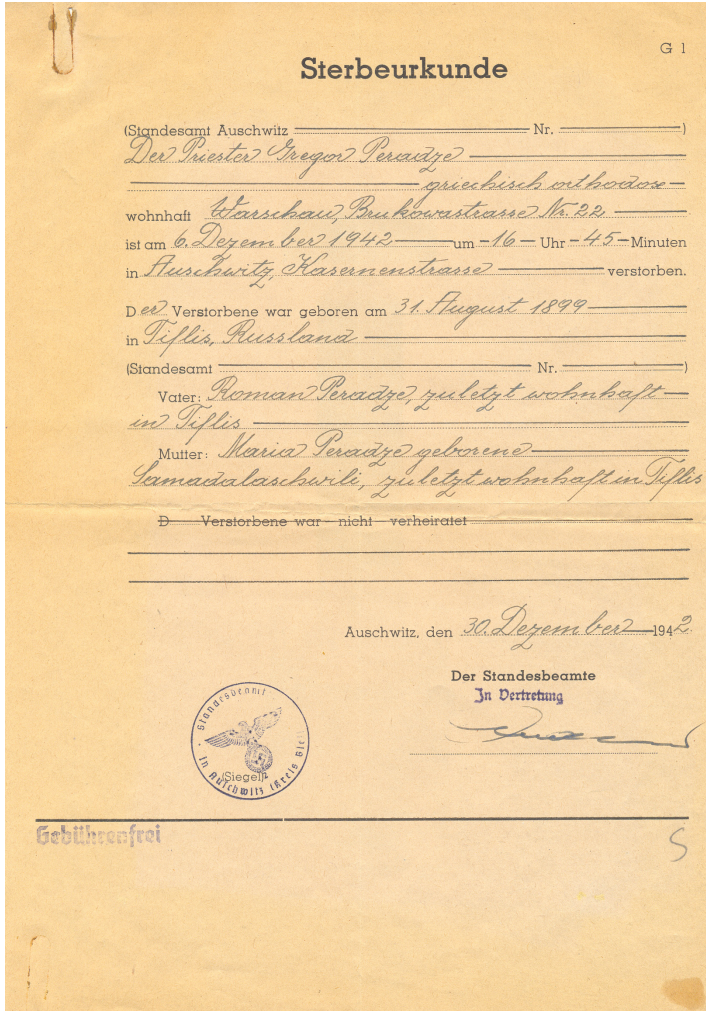 G 1
Sterbeurkunde
(Standesamt Auschwitz Nr. )
Der Priester Gregor Peradze
griechisch orthodox
wohnhaft Warschau, Brukowastrasse Nr. 22
ist am 6. Dezember 1942 um 16 Uhr 45 Minuten
in Auschwitz, Kasernenstrasse verstorben.
Der Verstorbene war geboren am 31. August 1899
in Tiflis, Russland
(Standesamt Nr. )
Vater: Roman Peradze, zuletzt wohnhaft
in Tiflis
Mutter: Maria Peradze geborene
Samadalaschwili, zuletzt wohnhaft in Tiflis
D Verstorbene war nicht verheiratet
Auschwitz, den 30. Dezember 1942.
Der Standesbeamte
In Vertretung
Standesbeamt
in Auschwitz (Kreis
(Siegel)
Gebührenfrei
S